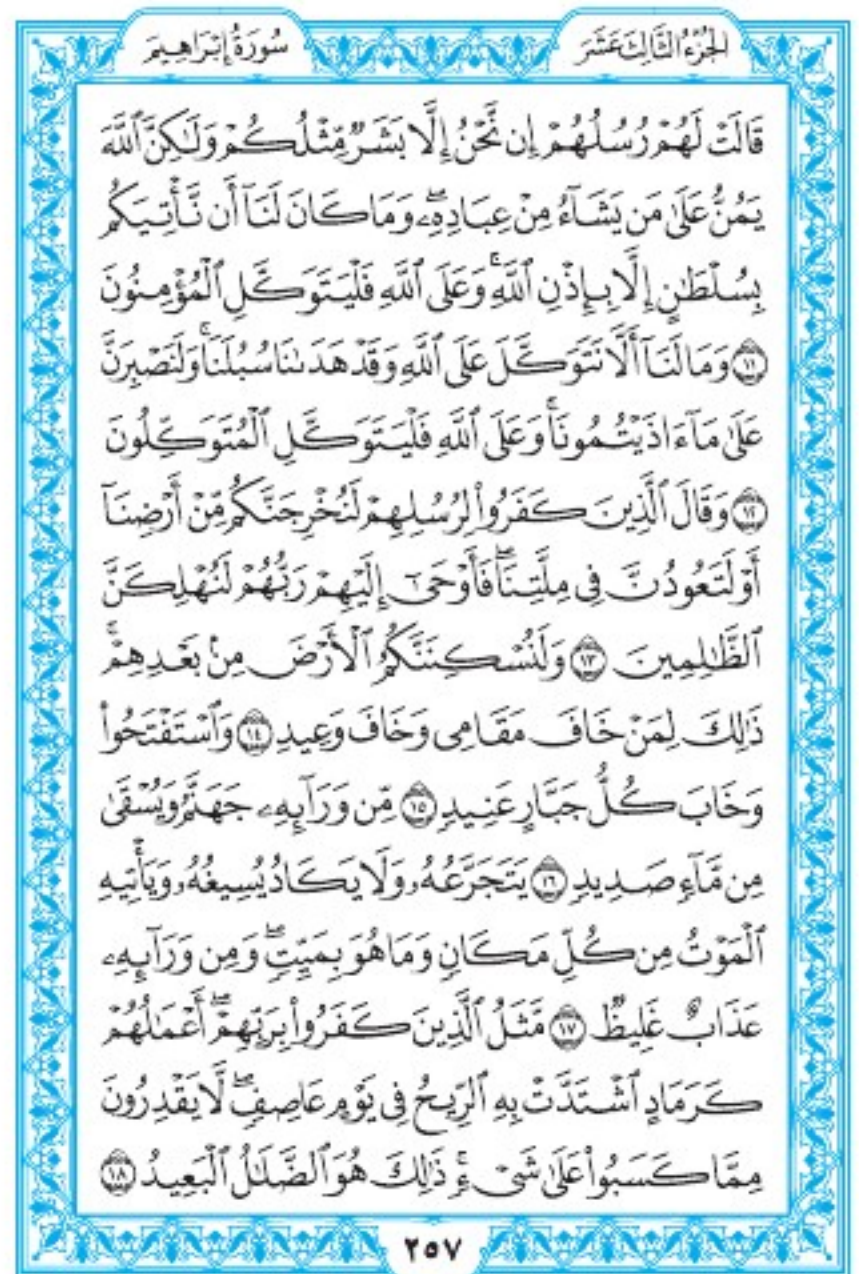 الجزء الثالث عشر
سورة إبراهيم
قَالَتْ لَهُمْ رُسُلُهُمْ إِن نَّحْنُ إِلَّا بَشَرٌ مِّثْلُكُمْ وَلَٰكِنَّ ٱللَّهَ
يَمُنُّ عَلَىٰ مَن يَشَآءُ مِنْ عِبَادِهِۦۖ وَمَا كَانَ لَنَآ أَن نَّأْتِيَكُم
بِسُلْطَٰنٍ إِلَّا بِإِذْنِ ٱللَّهِۚ وَعَلَى ٱللَّهِ فَلْيَتَوَكَّلِ ٱلْمُؤْمِنُونَ
١١ وَمَا لَنَآ أَلَّا نَتَوَكَّلَ عَلَى ٱللَّهِ وَقَدْ هَدَىٰنَا سُبُلَنَاۚ وَلَنَصْبِرَنَّ
عَلَىٰ مَآ ءَاذَيْتُمُونَاۚ وَعَلَى ٱللَّهِ فَلْيَتَوَكَّلِ ٱلْمُتَوَكِّلُونَ
١٢ وَقَالَ ٱلَّذِينَ كَفَرُوا۟ لِرُسُلِهِمْ لَنُخْرِجَنَّكُم مِّنْ أَرْضِنَآ
أَوْ لَتَعُودُنَّ فِى مِلَّتِنَاۖ فَأَوْحَىٰٓ إِلَيْهِمْ رَبُّهُمْ لَنُهْلِكَنَّ
ٱلظَّٰلِمِينَ ١٣ وَلَنُسْكِنَنَّكُمُ ٱلْأَرْضَ مِنۢ بَعْدِهِمْۚ
ذَٰلِكَ لِمَنْ خَافَ مَقَامِى وَخَافَ وَعِيدِ ١٤ وَٱسْتَفْتَحُوا۟
وَخَابَ كُلُّ جَبَّارٍ عَنِيدٍ ١٥ مِّن وَرَآئِهِۦ جَهَنَّمُ وَيُسْقَىٰ
مِن مَّآءٍ صَدِيدٍ ١٦ يَتَجَرَّعُهُۥ وَلَا يَكَادُ يُسِيغُهُۥ وَيَأْتِيهِ
ٱلْمَوْتُ مِن كُلِّ مَكَانٍ وَمَا هُوَ بِمَيِّتٍۖ وَمِن وَرَآئِهِۦ
عَذَابٌ غَلِيظٌ ١٧ مَّثَلُ ٱلَّذِينَ كَفَرُوا۟ بِرَبِّهِمْۖ أَعْمَٰلُهُمْ
كَرَمَادٍ ٱشْتَدَّتْ بِهِ ٱلرِّيحُ فِى يَوْمٍ عَاصِفٍۖ لَّا يَقْدِرُونَ
مِمَّا كَسَبُوا۟ عَلَىٰ شَىْءٍۚ ذَٰلِكَ هُوَ ٱلضَّلَٰلُ ٱلْبَعِيدُ ١٨
٢٥٧